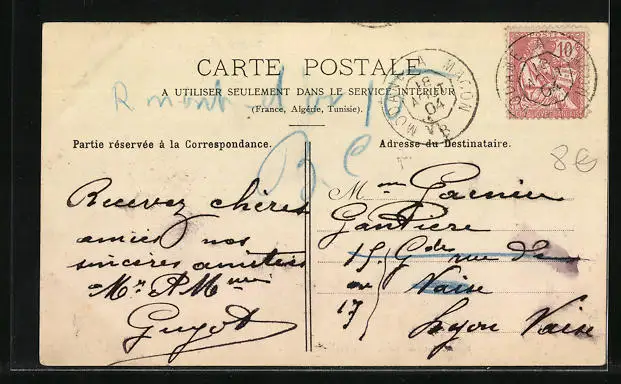 CARTE POSTALE
A UTILISER SEULEMENT DANS LE SERVICE INTÉRIEUR
(France, Algérie, Tunisie).
Partie réservée à la Correspondance.
Recevez chères
amies nos
sincères amitiés
Mr & Mme
Guyot
Adresse du Destinataire.
Gantière
15 Gde rue de
Vaise
17
Lyon Vaise
B.C
8€
10
MACON
04